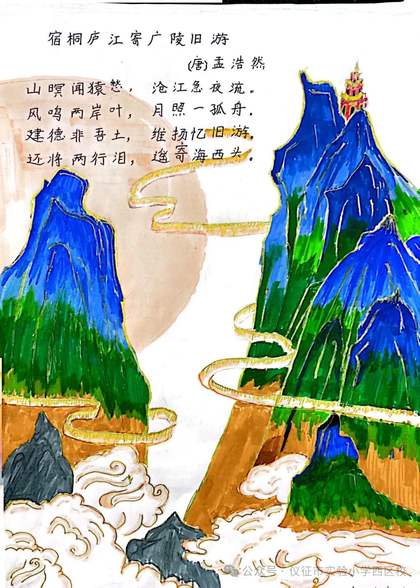 宿桐庐江寄广陵旧游
(唐)孟浩然
山暝闻猿愁，沧江急夜流。
风鸣两岸叶，月照一孤舟。
建德非吾土，维扬忆旧游。
还将两行泪，遥寄海西头。
公众号·仪征市实验小学西区校